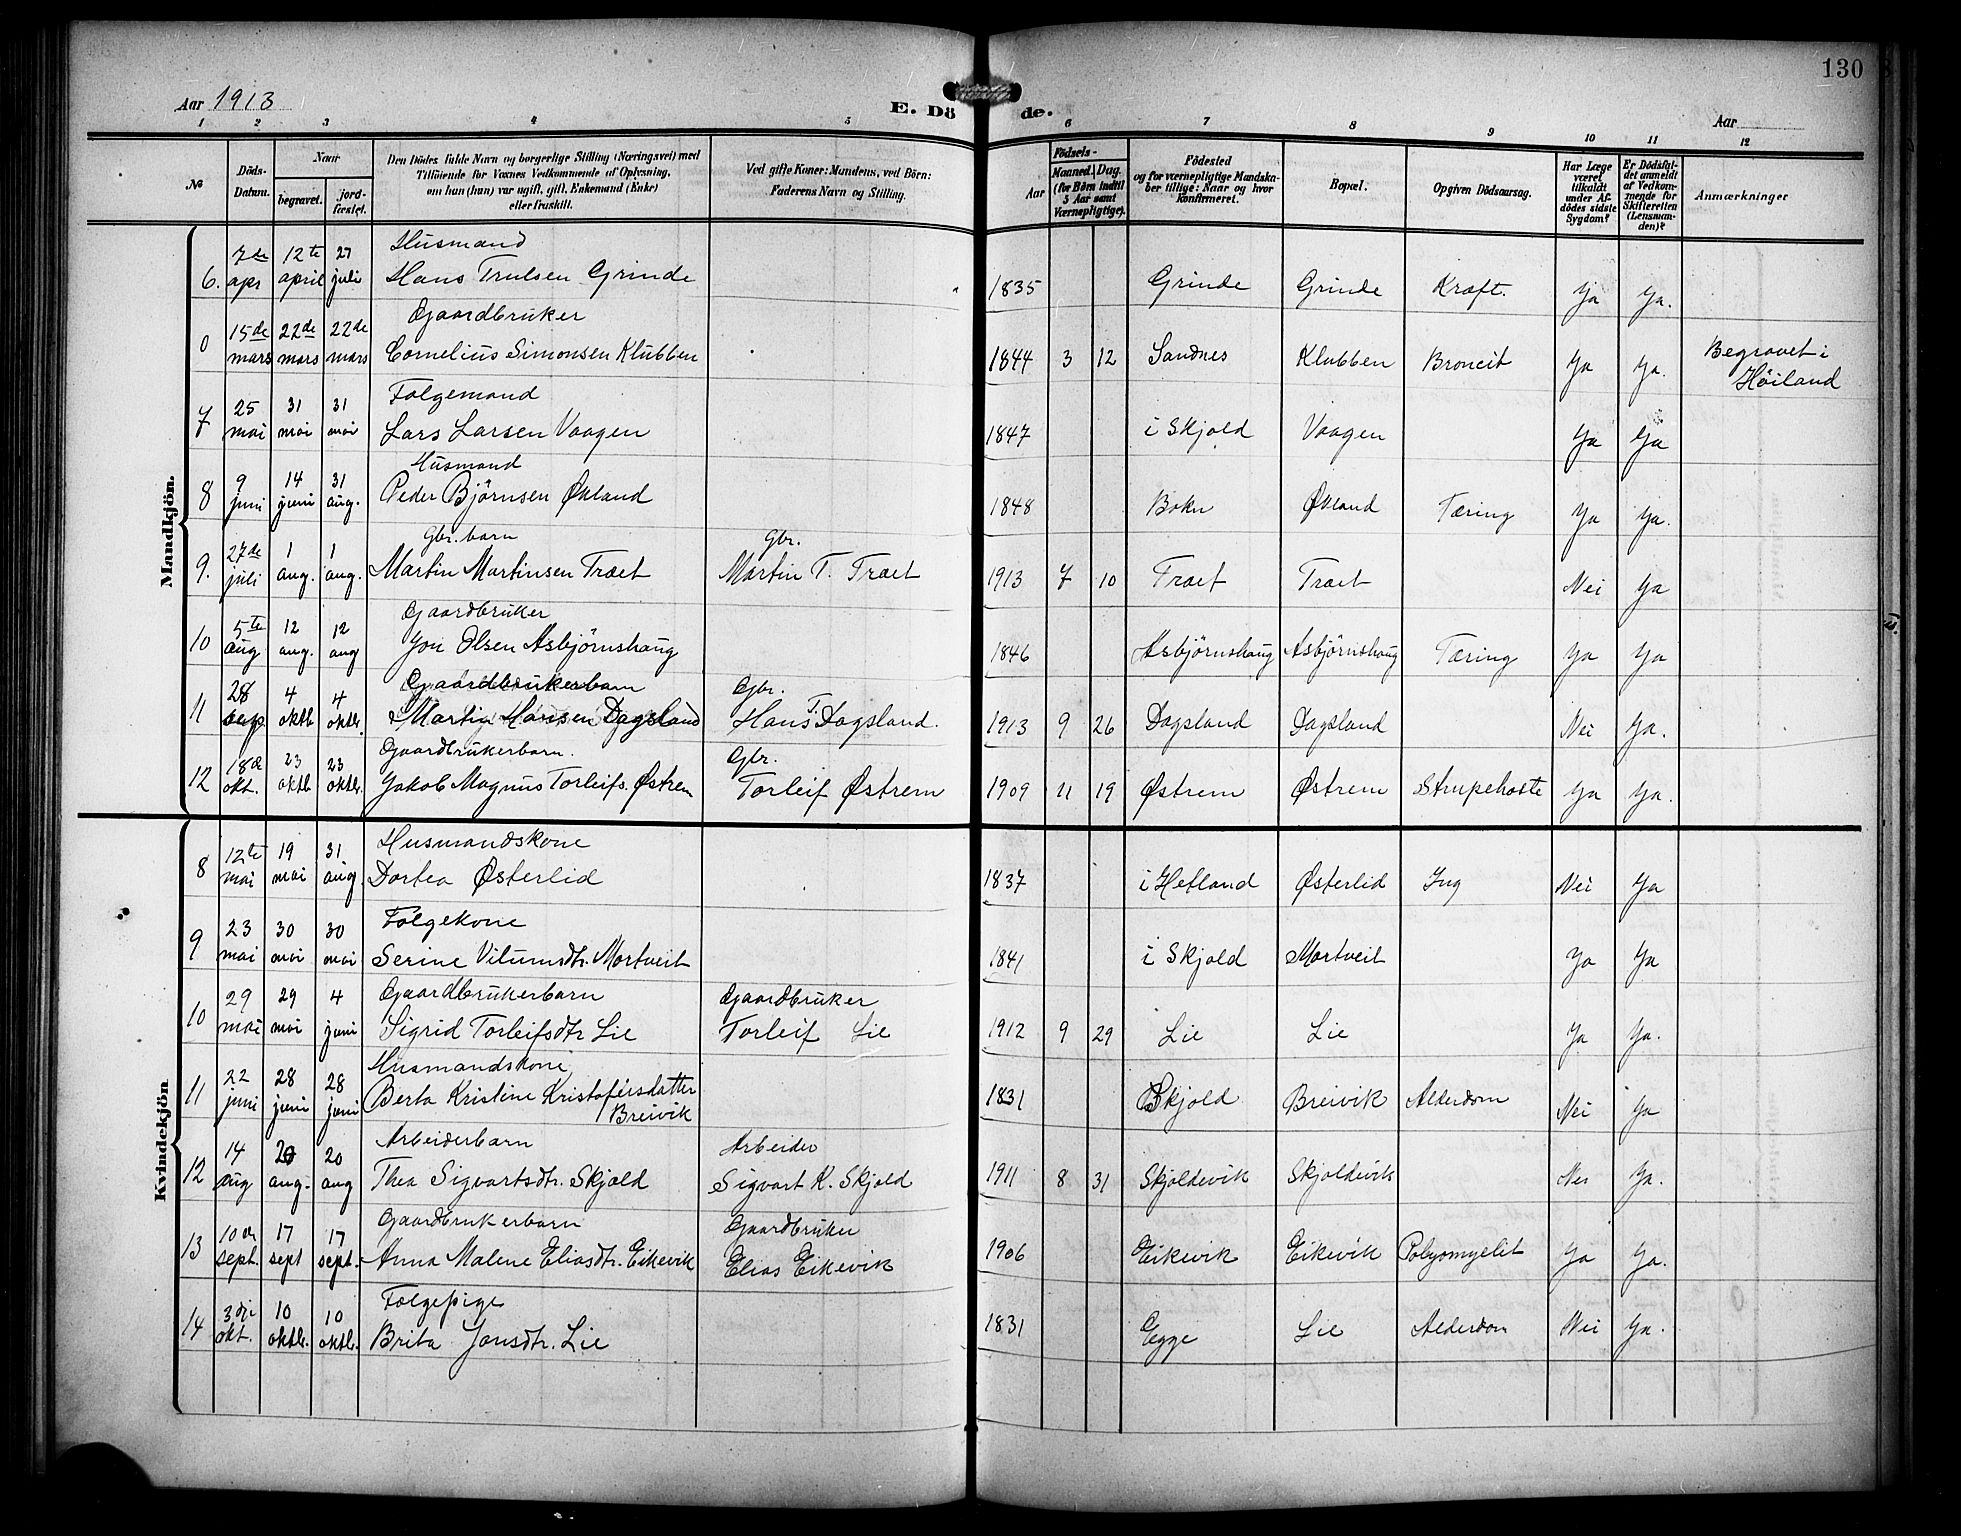 130
Aar 1913
E. Dö de.
Aar
1 2 3 4 5 6 7 8 9 10 11 12
No
Döds-Datum.
Naar
begravet.
jord-festet.
Den Dödes fulde Navn og borgerlige Stilling (Næringsvei) med
Tilföiende for Voxnes Vedkommende af Oplysning,
om hun (han) var ugift, gift, Enkemand (Enke)
eller fraskilt.
Ved gifte Koner: Mandens, ved Börn:
Faderens Navn og Stilling.
Födsels-
Aar
Maaned. Dag.
(for Börn indtil
5 Aar samt
Værnepligtige).
Födested
og for værnepligtige Mandska-
ber tillige: Naar og hvor
konfirmeret.
Bopæl.
Opgiven Dödsaarsag.
Har Læge
været
tilkaldt
under Af-
dödes sidste
Sygdom?
Er Dödsfal-
det anmeldt
af Vedkom-
mende for
Skifteretten
(Lensman-
den)?
Anmærkninger
Mandkjön.
6. 7de apr 12te april 27 juli Husmand
Hans Trulsen Grinde 1835 Grinde Grinde Kræft. Ja Ja.
0 15de mars 22de mars 22de mars Gaardbruker
Cornelius Simonsen Klubben 1844 3 12 Sandnes Klubben Broncit Ja Ja. Begravet i
Höiland
7 25 mai 31 mai 31 mai Folgemand
Lars Larsen Vaagen 1847 i Skjold Vaagen Ja Ja
8 9 juni 14 juni 31 aug. Husmand
Peder Björnsen Økland 1848 Bokn Økland Tæring Ja Ja.
9. 27de juli 1 aug. 1 aug. Gbr. barn Gbr.
Martin Martinsen Træet Martin T. Træet 1913 7 10 Træet Træet Nei Ja
10 5te aug 12 aug. 12 aug Gaardbruker
Jon Olsen Asbjörnshaug 1846 Asbjörnshaug Asbjörnshaug Tæring Ja Ja
11 28 sep 4 oktb 4 oktbr. Gaardbrukerbarn Gbr.
Martin Hansen Dagsland Hans T. Dagsland. 1913 9 26 Dagsland Dagsland Nei Ja.
12 18de okt. 23 oktb 23 oktbr. Gaardbrukerbarn. Gbr.
Jakob Magnus Torleifs. Østrem Torleif Østrem 1909 11 19 Østrem Østrem Strupehoste Ja Ja.
Kvindekjön
8 12te mai 19 mai 31 aug. Husmandskone
Dortea Østerlid 1837 i Hetland Østerlid Nei Ja
9 23 mai 30 mai 30 mai Folgekone
Serine Vilumsdtr. Mortveit 1841 i Skjold Mortveit Ja Ja
10 29 mai 29 mai 4 juni Gaardbrukerbarn Gaardbruker
Sigrid Torleifsdtr Lie Torleif Lie 1912 9 29 Lie Lie Ja Ja.
11 22 juni 28 juni 28 juni Husmandskone
Berta Kristine Kristofersdatter
Breivik 1831 Skjold Breivik Alderdom Nei Ja
12 14 aug 20 aug. 20 aug Arbeiderbarn Arbeider
Thea Sigvartsdtr. Skjold Sigvart K. Skjold 1911 8 31 Skjoldevik Skjoldevik Nei Ja.
13 10de sept. 17 sept 17 sept. Gaardbrukerbarn Gaardbruker
Anna Malene Eliasdtr. Eikevik Elias Eikevik 1906 Eikevik Eikevik Polyomyelit Ja Ja.
14 3dje okt. 10 oktbr. 10 oktbr. Folgepige
Brita Jonsdtr. Lie 1831 Egge Lie Alderdom Nei Ja.